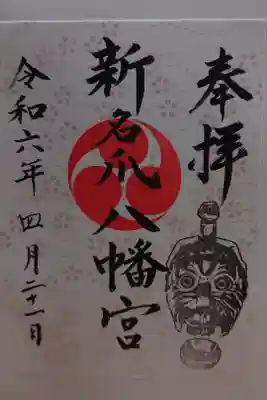 奉拝
新名爪八幡宮
令和六年四月二十一日